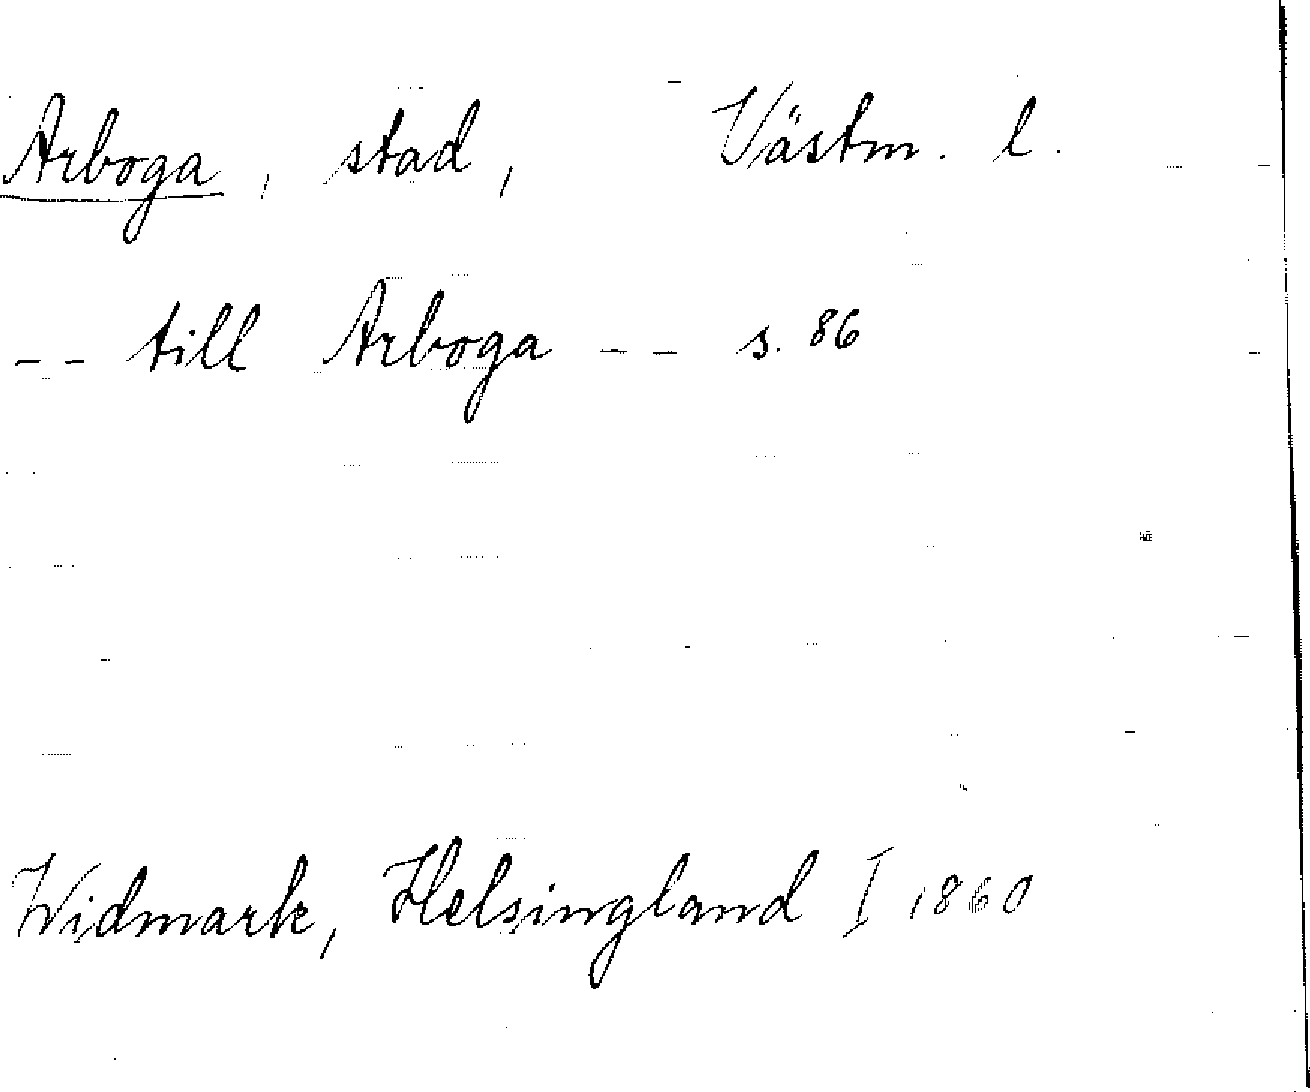 Arboga, stad, Västm. l.
-- till Arboga -- s. 86
Widmark, Helsingland I 1860